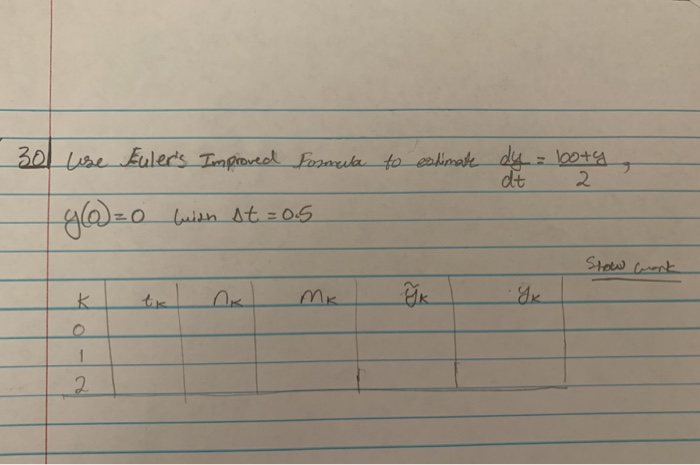 30) Use Euler's Improved Formula to estimate dy/dt = 100+y/2,
y(0)=0 with Δt = 0.5
Show work
K tK nK mK ỹK yK
0
1
2